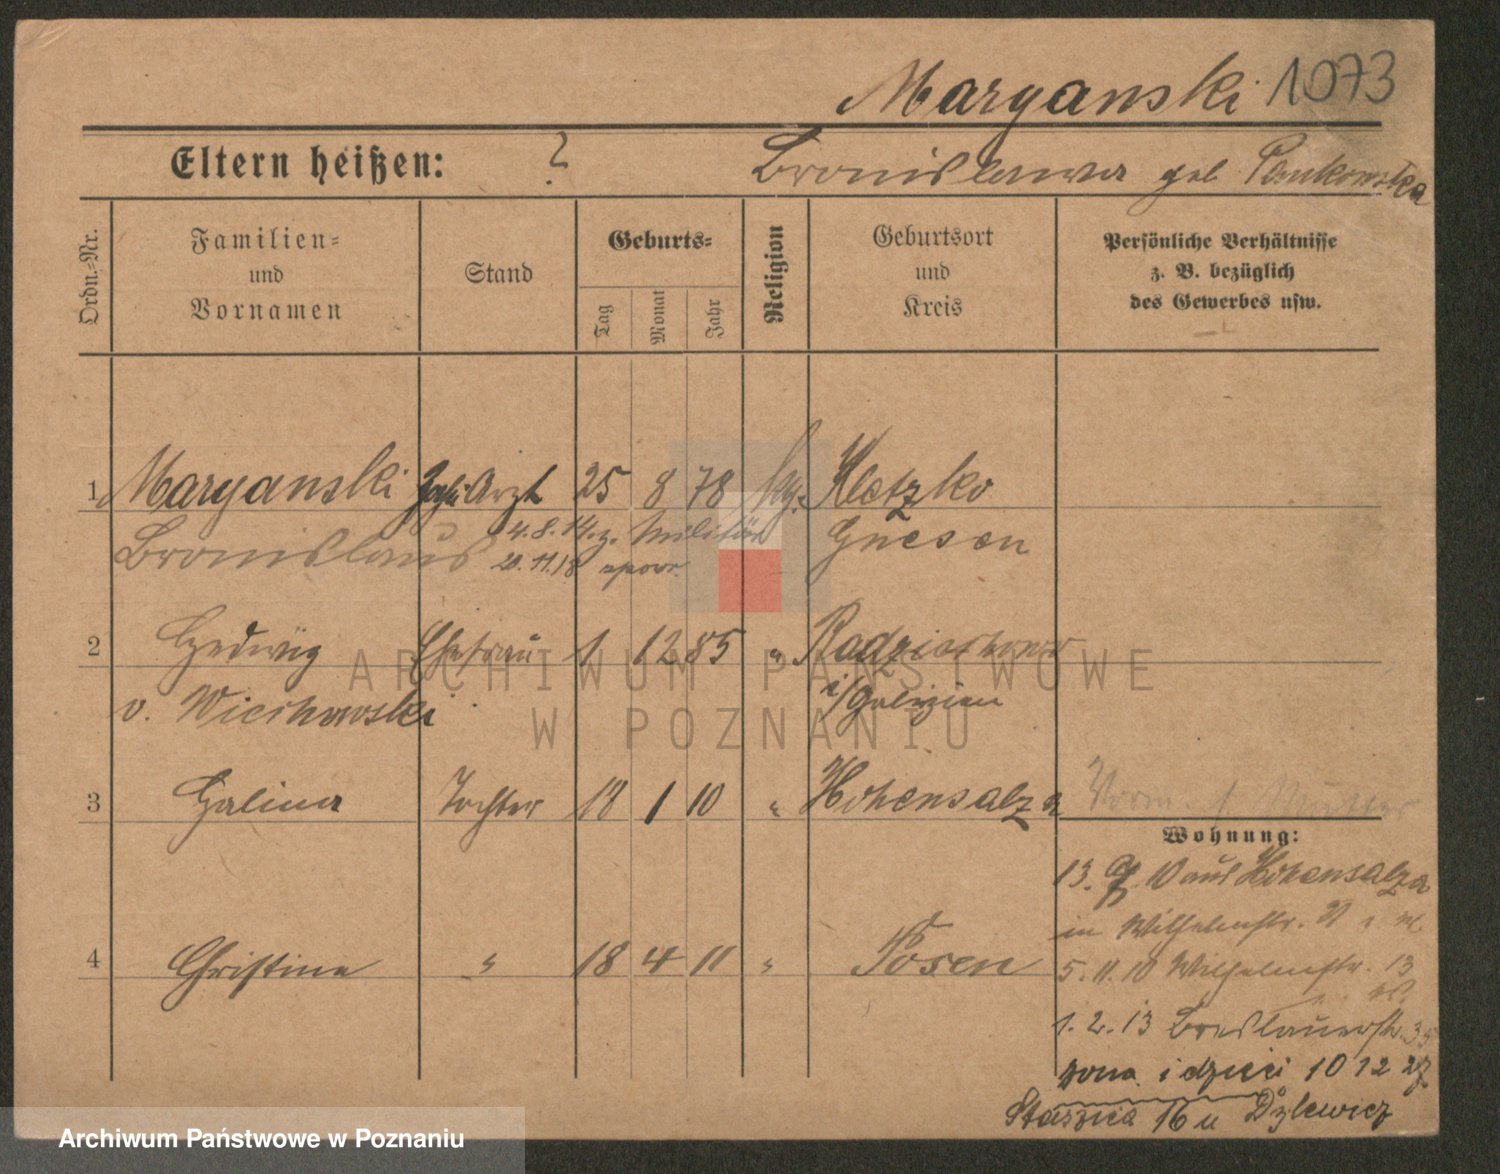 Maryanski 1073
Eltern heißen: ? Bronislawa geb Pankowska
Ordn.=Nr.
Familien=
und
Vornamen
Stand
Geburts=
Tag
Monat
Jahr
Religion
Geburtsort
und
Kreis
Persönliche Verhältnisse
z. B. bezüglich
des Gewerbes usw.
1 Maryanski Arzt 25 8 78 Kletzko
Bronislaus 4.8.14. z. Militär Gnesen
20.11.18
2 Hedwig Ehefrau 1 12 85 "
v. i/Galizien
3 Halina Tochter 18 1 10 " Hohensalza
Mutter
Wohnung:
13. 10 aus Hohensalza
in Wilhelmstr.
4 Christine " 18 4 11 " Posen
5.11.10 Wilhelmstr. 13
1.2.13 Breslauerstr. 35
żona i dzieci 10 12 27
Staszica 16 u Dylewicz
ARCHIWUM PAŃSTWOWE
W POZNANIU
Archiwum Państwowe w Poznaniu